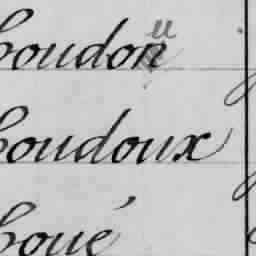 u
boudon
boudoux
boué